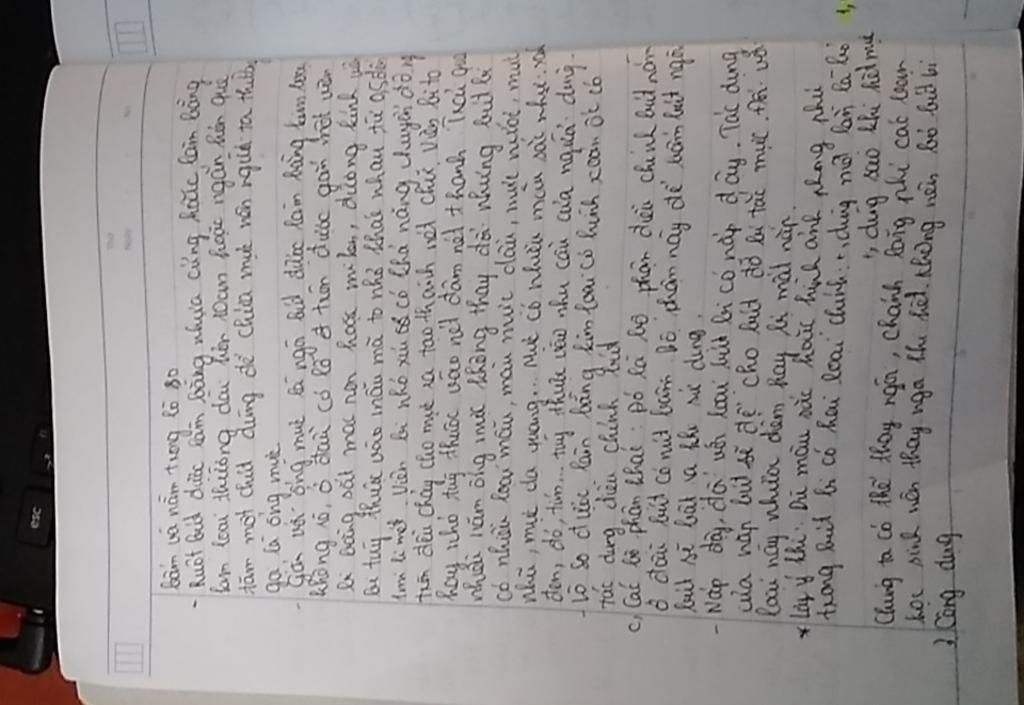 bấm và nằm trong lò xo
- Ruột bút được làm bằng nhựa cứng hoặc làm bằng
kim loại thường dài hơn 10cm hoặc ngắn hơn
tăm một chút dùng để chứa mực nên người ta thường
gọi là ống mực
- Gắn với ống mực là ngòi bút được làm bằng kim loại
không rỉ, ở đầu có lỗ ở trên được gắn một viên
bi bằng sắt mạ hoặc niken, đường kính viên
bi tùy thuộc vào mẫu mã to nhỏ khác nhau từ 0,5 đến
1mi li mét. Viên bi nhỏ xíu có khả năng chuyển động
tròn đều chảy cho mực ra tạo thành nét chữ. Viên bi to
hay nhỏ tuỳ thuộc vào nét đậm nét thanh. Trải qua
nhiều năm ống mực không thay đổi nhưng bút bi
có nhiều loại mẫu, màu mực dầu, mực nước, mực
nhũ, mực dạ quang... Mực có nhiều màu sắc như: xanh
đen, đỏ, tím... tuỳ thuộc vào nhu cầu của người dùng.
- Lò xo được làm bằng kim loại có hình xoắn ốc có
tác dụng điều chỉnh bút
c, Các bộ phận khác: Đó là bộ phận điều chỉnh bút nằm
ở đầu bút có nút bấm. Bộ phận này để bấm bút ngòi
bút sẽ bật ra khi sử dụng.
- Nắp đậy, đối với loại bút bi có nắp đậy. Tác dụng
của nắp bút sẽ để cho bút đỡ bị tắc mực. Đối với
loại này nhược điểm hay bị mất nắp.
* Lấy thí dụ màu sắc hoặc hình ảnh phong phú
trong bút bi có hai loại chính: + dùng một lần là bỏ
+, dùng sao khi hết mực
Chúng ta có thể thay ngòi, chánh lãng phí các bạn
học sinh nên thay ngòi khi hết không nên bỏ bút bi
2. Công dụng
esc